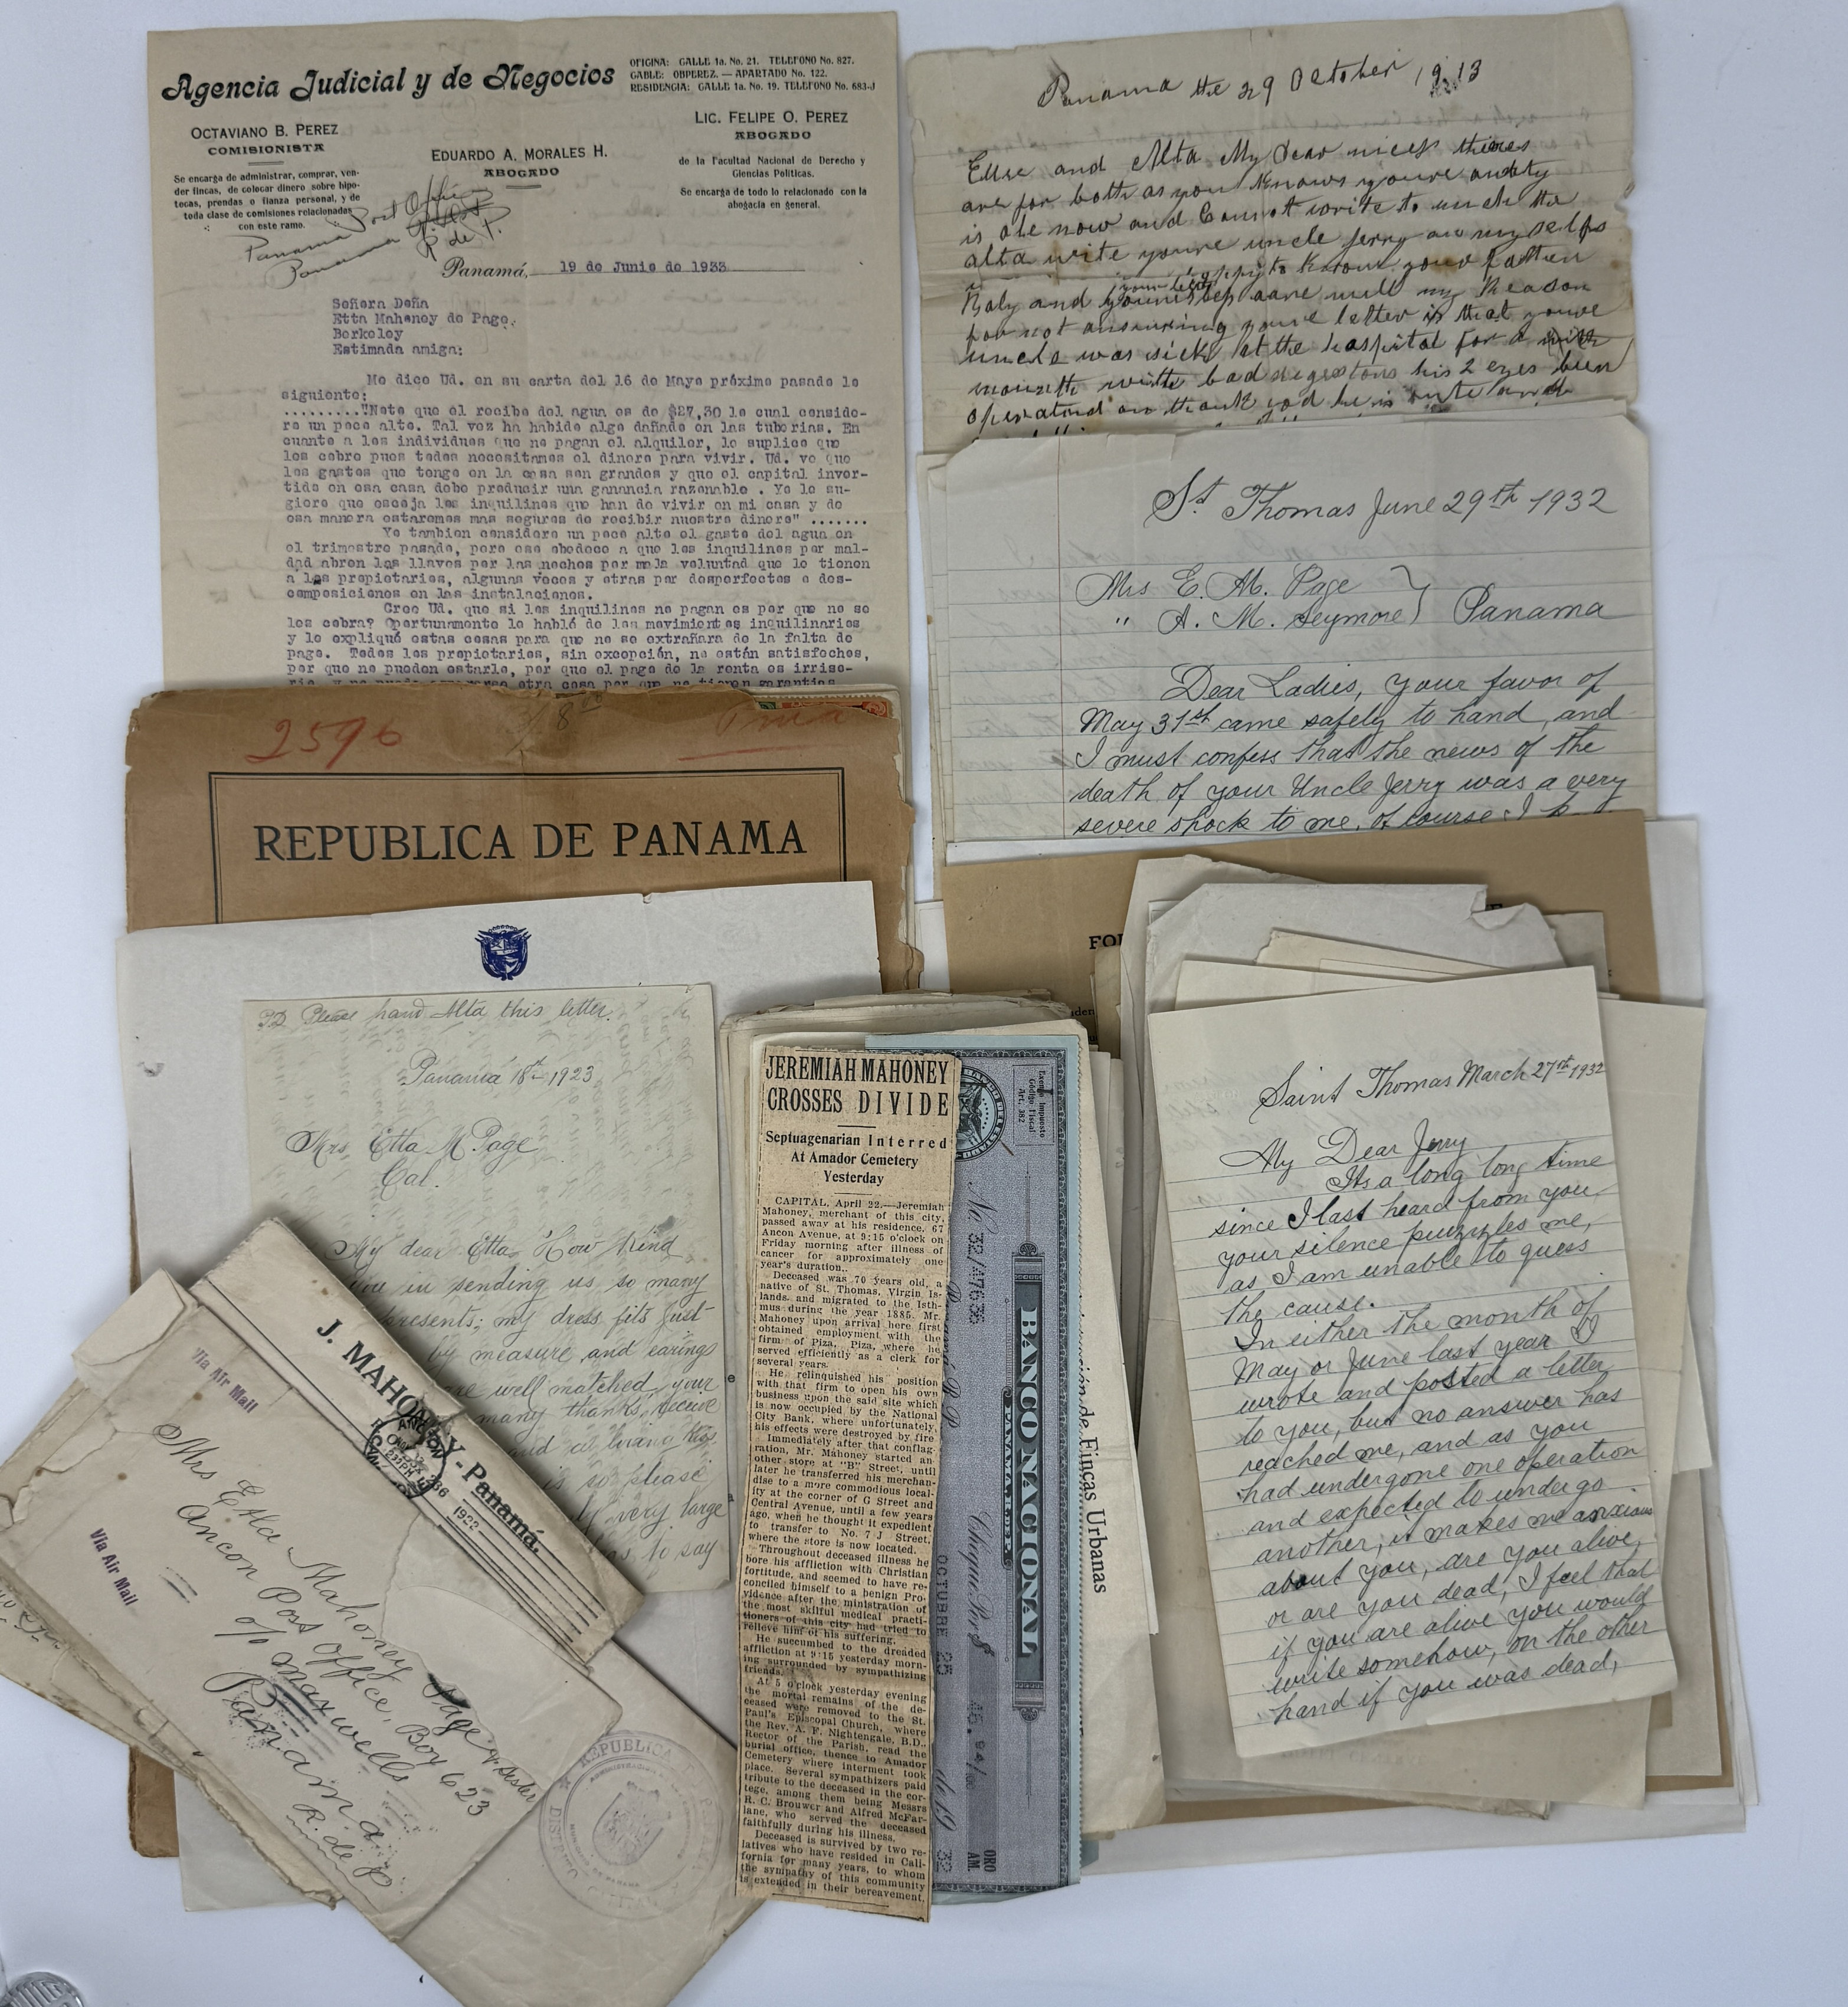 Agencia Judicial y de Negocios
OFICINA: CALLE 1a. No. 21. TELEFONO No. 827.
CABLE: OBPEREZ. — APARTADO No. 122.
RESIDENCIA: CALLE 1a. No. 19. TELEFONO No. 683-J
OCTAVIANO B. PEREZ
COMISIONISTA
Se encarga de administrar, comprar, ven-
der fincas, de colocar dinero sobre hipo-
tecas, prendas o fianza personal, y de
toda clase de comisiones relacionadas
con este ramo.
EDUARDO A. MORALES H.
ABOGADO
LIC. FELIPE O. PEREZ
ABOGADO
de la Facultad Nacional de Derecho y
Ciencias Políticas.
Se encarga de todo lo relacionado con la
abogacía en general.
Panama Post Office
Panama
R de P.
Panamá, 19 de Junio de 1933
Señora Doña
Etta Mahoney de Page.
Berkeley
Estimada amiga:
Me dice Ud. en su carta del 16 de Mayo próximo pasado lo
siguiente:
........."Note que el recibo del agua es de $27,30 lo cual conside-
re un poco alto. Tal vez ha habido algo dañado en las tuberias. En
cuanto a los individuos que no pagan el alquiler, le suplico que
les cobre pues todos necesitamos el dinero para vivir. Ud. ve que
los gastos que tengo en la casa son grandes y que el capital inver-
tido en esa casa debe producir una ganancia razonable . Yo le su-
giero que escoja los inquilinos que han de vivir en mi casa y de
esa manera estaremos mas seguros de recibir nuestro dinero" .......
Yo tambien considero un poco alto el gasto del agua en
el trimestre pasado, pero eso obedece a que los inquilinos por mal-
dad abren las llaves por las noches por mala voluntad que le tienen
a los propietarios, algunas veces y otras por desperfectos o des-
composiciones en las instalaciones.
Cree Ud. que si los inquilinos no pagan es por que no se
les cobra? Oportunamente le hablé de los movimientos inquilinarios
y le expliqué estas cosas para que no se extrañara de la falta de
pago. Todos los propietarios, sin excepción, no están satisfechos,
por que no pueden estarlo, por que el pago de la renta es irriso-
rio, y no puede esperarse otra cosa por que no tienen garantias
Panama the 29 October 1913
Etta and Alta My Dear nices theires
are for both as you knows youre aunty
is ole now and cannot write to uncle the
alta write youre uncle Jerry an my selfs
is happy to know your father
Raly and your step are well my Reason
for not ansuring youre letter is that youre
uncle was sick at the hospital for a
mounth with bad digestons his 2 eyes been
operated on thank god he is
St Thomas June 29th 1932
Mrs E. M. Page
" A. M. Seymore } Panama
Dear Ladies, your favor of
May 31st came safely to hand, and
I must confess that the news of the
death of your Uncle Jerry was a very
severe shock to me, of course I
2596
REPUBLICA DE PANAMA
FOR
PD Please hand Alta this letter.
Panama 18th 1923
Mrs Etta M. Page
Cal.
My dear Etta How Kind
you in sending us so many
presents; my dress fits just
by measure and earings
are well matched, your
many thanks, receive
and a
is so please
very large
to say
JEREMIAH MAHONEY
CROSSES DIVIDE
Septuagenarian Interred
At Amador Cemetery
Yesterday
CAPITAL, April 22.—Jeremiah
Mahoney, merchant of this city,
passed away at his residence, 67
Ancon Avenue, at 9:15 o'clock on
Friday morning after illness of
cancer for approximately one
year's duration..
Deceased was 70 years old, a
native of St. Thomas, Virgin Is-
lands, and migrated to the Isth-
mus during the year 1885. Mr.
Mahoney upon arrival here first
obtained employment with the
firm of Piza, Piza, where he
served efficiently as a clerk for
several years.
He relinquished his position
with that firm to open his own
business upon the said site which
is now occupied by the National
City Bank, where unfortunately,
his effects were destroyed by fire
Immediately after that conflag-
ration, Mr. Mahoney started an-
other store at "B" Street, until
later he transferred his merchan-
dise to a more commodious local-
ity at the corner of G Street and
Central Avenue, until a few years
ago, when he thought it expedient
to transfer to No. 7 J Street,
where the store is now located.
Throughout deceased illness he
bore his affliction with Christian
fortitude, and seemed to have re-
conciled himself to a benign Pro-
vidence after the ministration of
the most skilful medical practi-
tioners of this city had tried to
relieve him of his suffering.
He succumbed to the dreaded
affliction at 9:15 yesterday morn-
ing surrounded by sympathizing
friends.
At 5 o'clock yesterday evening
the mortal remains of the de-
ceased were removed to the St.
Paul's Episcopal Church, where
the Rev. A. F. Nightengale, B.D.,
Rector of the Parish, read the
burial office, thence to Amador
Cemetery where interment took
place. Several sympathizers paid
tribute to the deceased in the cor-
tege, among them being Messrs
R. C. Brouwer and Alfred McFar-
lane, who served the deceased
faithfully during his illness.
Deceased is survived by two re-
latives who have resided in Cali-
fornia for many years, to whom
the sympathy of this community
is extended in their bereavement.
Exento Impuesto
Código Fiscal
Art. 382
No 32/47635
BANCO NACIONAL
PANAMA, R. DE P.
Cheque Por $
OCTUBRE 25
de 19 32
ORO
AM.
de Fincas Urbanas
Saint Thomas March 27th 1932
My Dear Jerry
Its a long long time
since I last heard from you,
your silence puzzles me,
as I am unable to guess
the cause.
In either the month of
May or June last year I
wrote and posted a letter
to you, but no answer has
reached me, and as you
had undergone one operation
and expected to undergo
another, it makes me anxious
about you, are you alive,
or are you dead, I feel that
if you are alive you would
write somehow, on the other
hand if you was dead,
J. MAHONEY - Panamá.
ANCON
1922
Via Air Mail
Via Air Mail
Mrs Etta Mahoney Page & Sister
Ancon Post Office, Box 623
c/o Maxwells
Panama
R. de P.
REPUBLICA